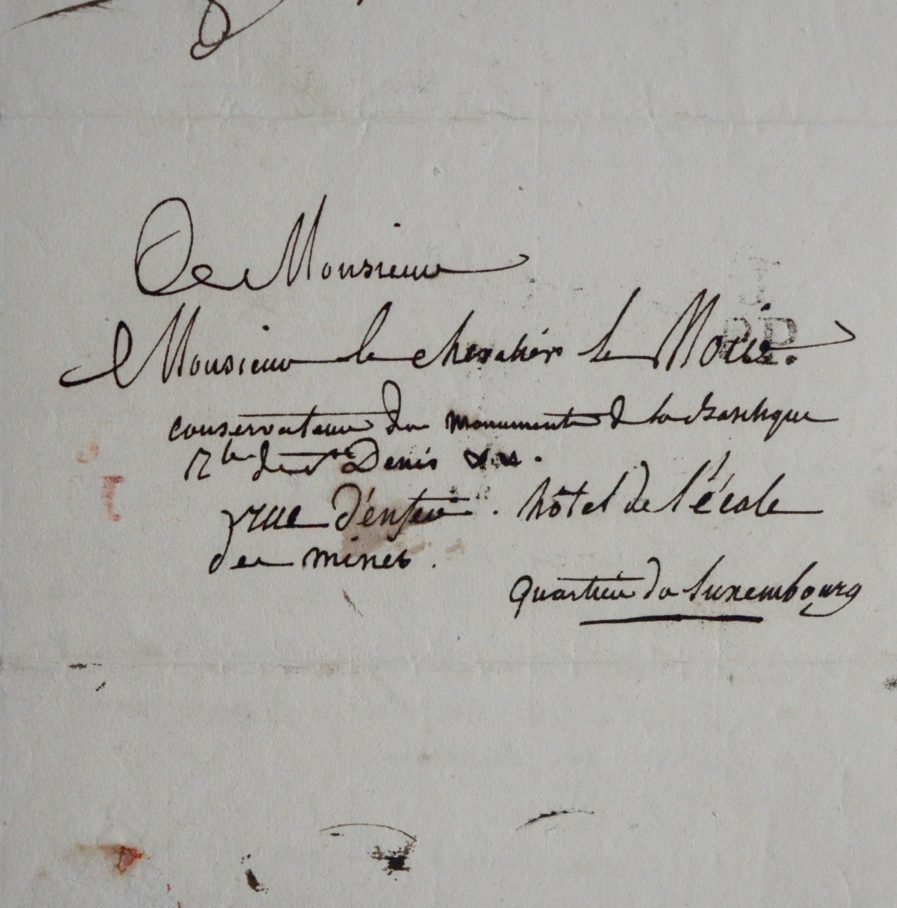 A Monsieur
Monsieur le chevalier le Noir
conservateur des monuments de la Basilique
Rle de St Denis &.&.
rue d'enfer. hôtel de l'école
des mines.
quartier du Luxembourg
P.P.